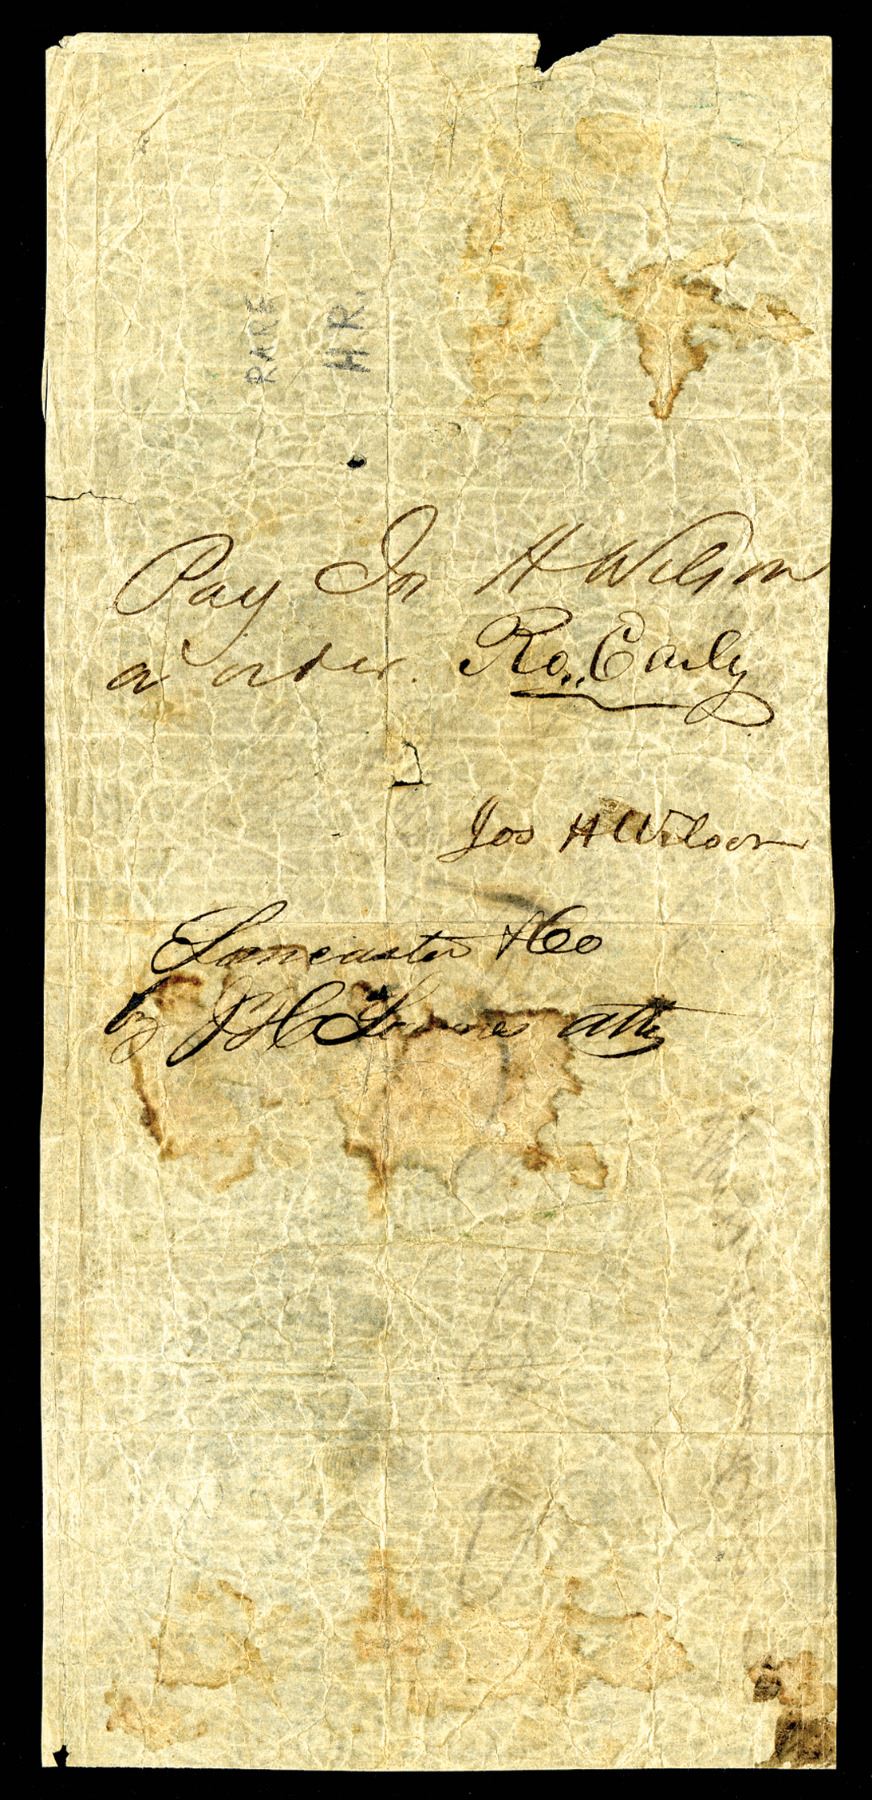 RARE
H.R.
Pay Jos H Wilson
or order. Ro. Early
Jos H Wilson
Lancaster & Co
by J H atty